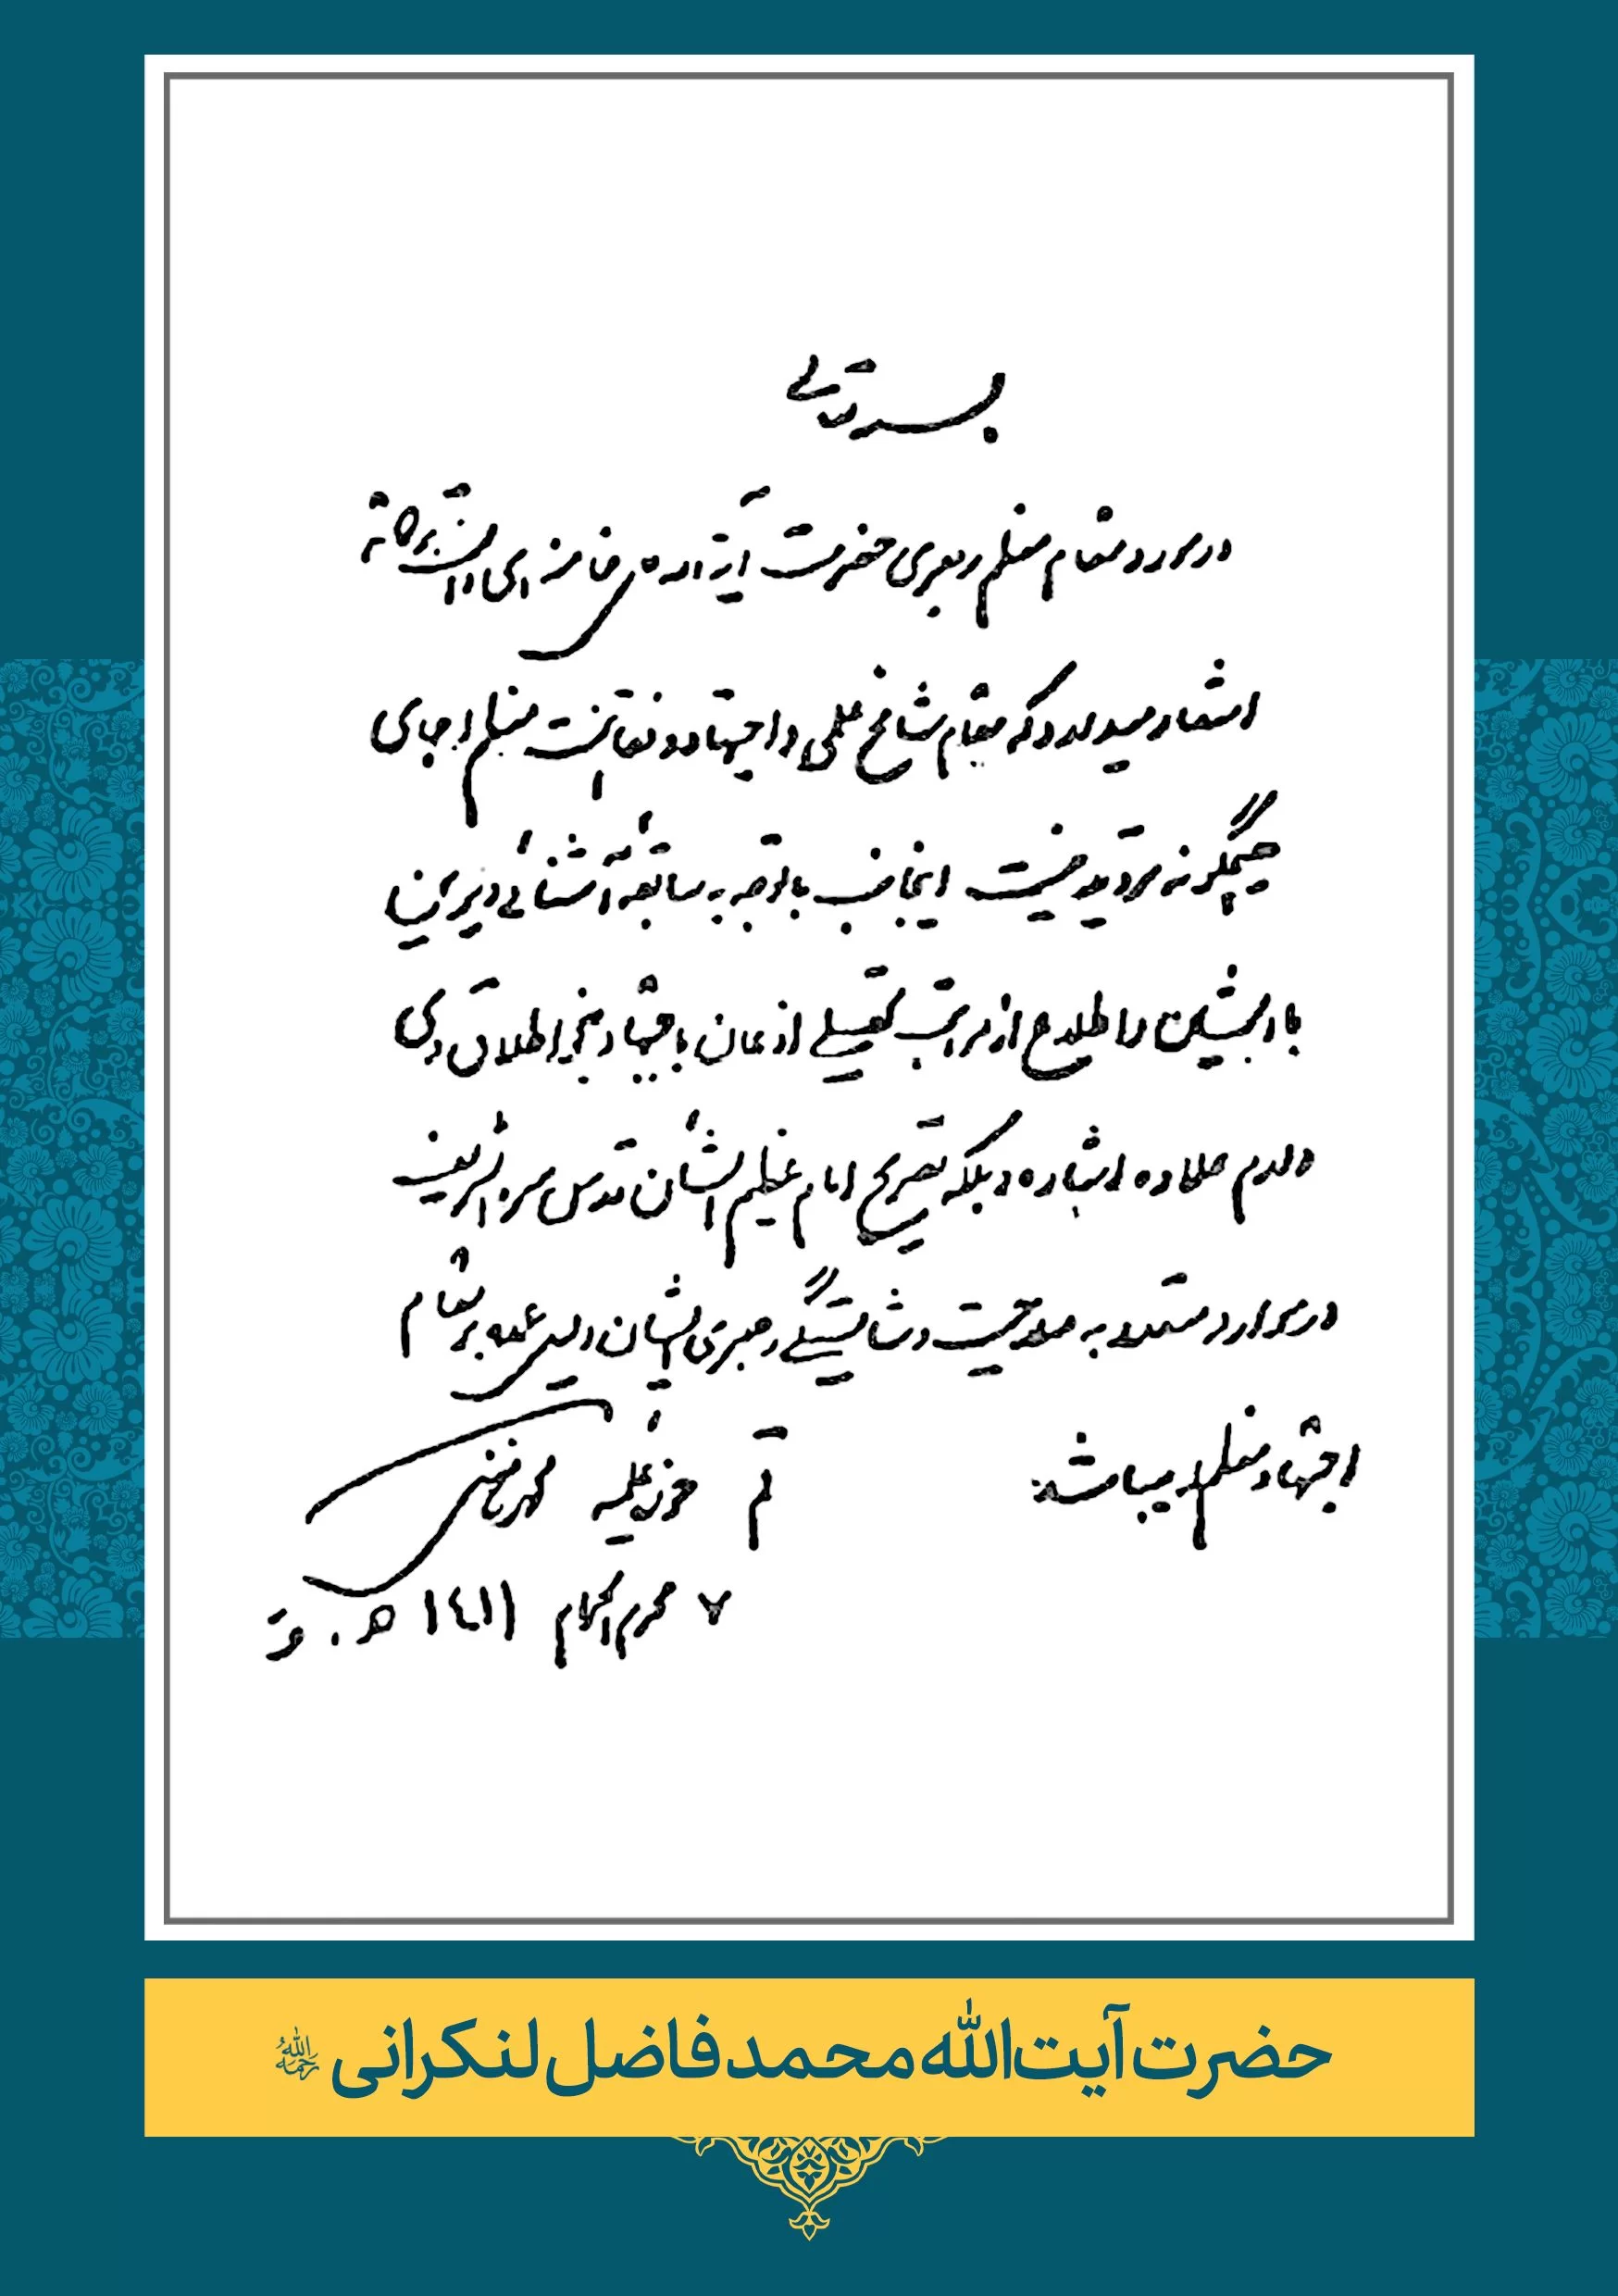 بسمه تعالی
در مورد مقام معظم رهبری حضرت آیة الله خامنه ای دامت برکاته
اشعار میدارد که مقام شامخ علمی و اجتهاد و فقاهت معظم له جای
هیچگونه تردید نیست اینجانب با توجه به سابقه آشنائی دیرین
با ایشان و اطلاع از مراتب تحصیلی اذعان باجتهاد بنحو اطلاق وی
دارم علاوه اشاره و بلکه تصریح امام عظیم الشان قدس سره الشریف
در موارد متعدد به صلاحیت و شایستگی رهبری ایشان دلیل عمده بر مقام
اجتهاد معظم له میباشد قم حوزه علمیه محمد فاضل
۷ محرم الحرام ۱٤۱۱ ه . ق
حضرت آیت الله محمد فاضل لنکرانی رحمه الله